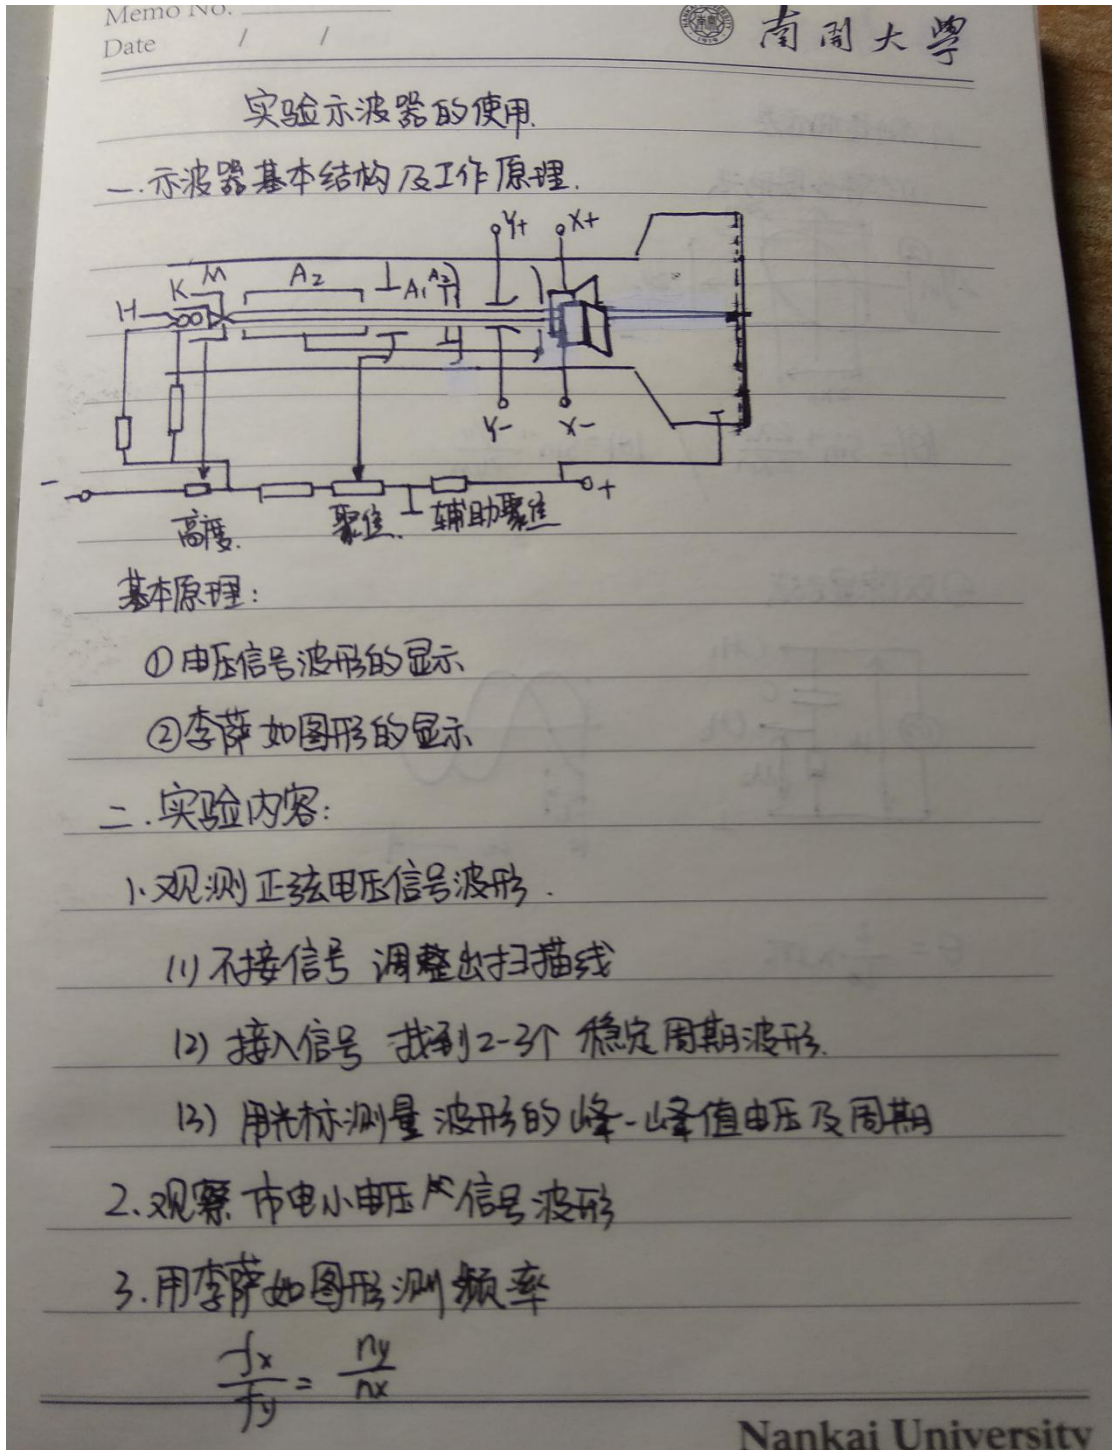 Memo No.
Date / /
南開大學
实验示波器的使用.
一.示波器基本结构及工作原理.
Y+ X+
H K M A2 A1 A2
Y- X-
- +
高度. 聚焦. 辅助聚焦
基本原理:
①电压信号波形的显示
②李萨如图形的显示
二.实验内容:
1.观测正弦电压信号波形.
(1)不接信号 调整出扫描线
(2)接入信号 找到2-3个 稳定周期波形.
(3)用光标测量波形的峰-峰值电压及周期
2.观察市电小电压信号波形
3.用李萨如图形测频率
fx/fy = ny/nx
Nankai University